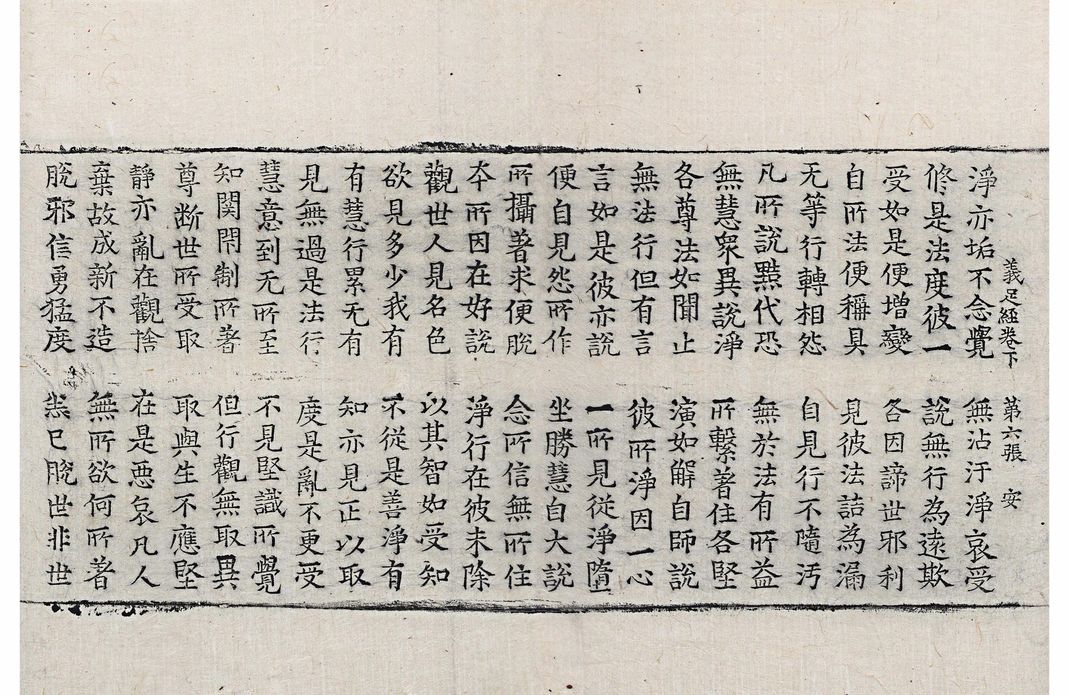 義足經卷下 第六張 安
淨亦垢不念覺 無沾汙淨哀受
修是法度彼一 說無行為遠欺
受如是便增變 各因諦世邪利
自所法便稱具 見彼法詰為漏
无等行轉相怨 自見行不隨汚
凡所說黠代恐 無於法有所益
無慧衆異說淨 所繫著住各堅
各尊法如聞止 演如解自師說
無法行但有言 彼所淨因一心
言如是彼亦說 一所見從淨墮
便自見怨所作 坐勝慧自大說
所攝著求便脫 念所信無所住
本所因在好說 淨行在彼未除
觀世人見名色 以其智如受知
欲見多少我有 不從是善淨有
有慧行累无有 知亦見正以取
見無過是法行 度是亂不更受
慧意到无所至 不見堅識所覺
知関閇制所著 但行觀無取異
尊断世所受取 取與生不應堅
靜亦亂在觀捨 在是悪哀凡人
棄故成新不造 無所欲何所著
脫邪信勇猛度 已脫世非世